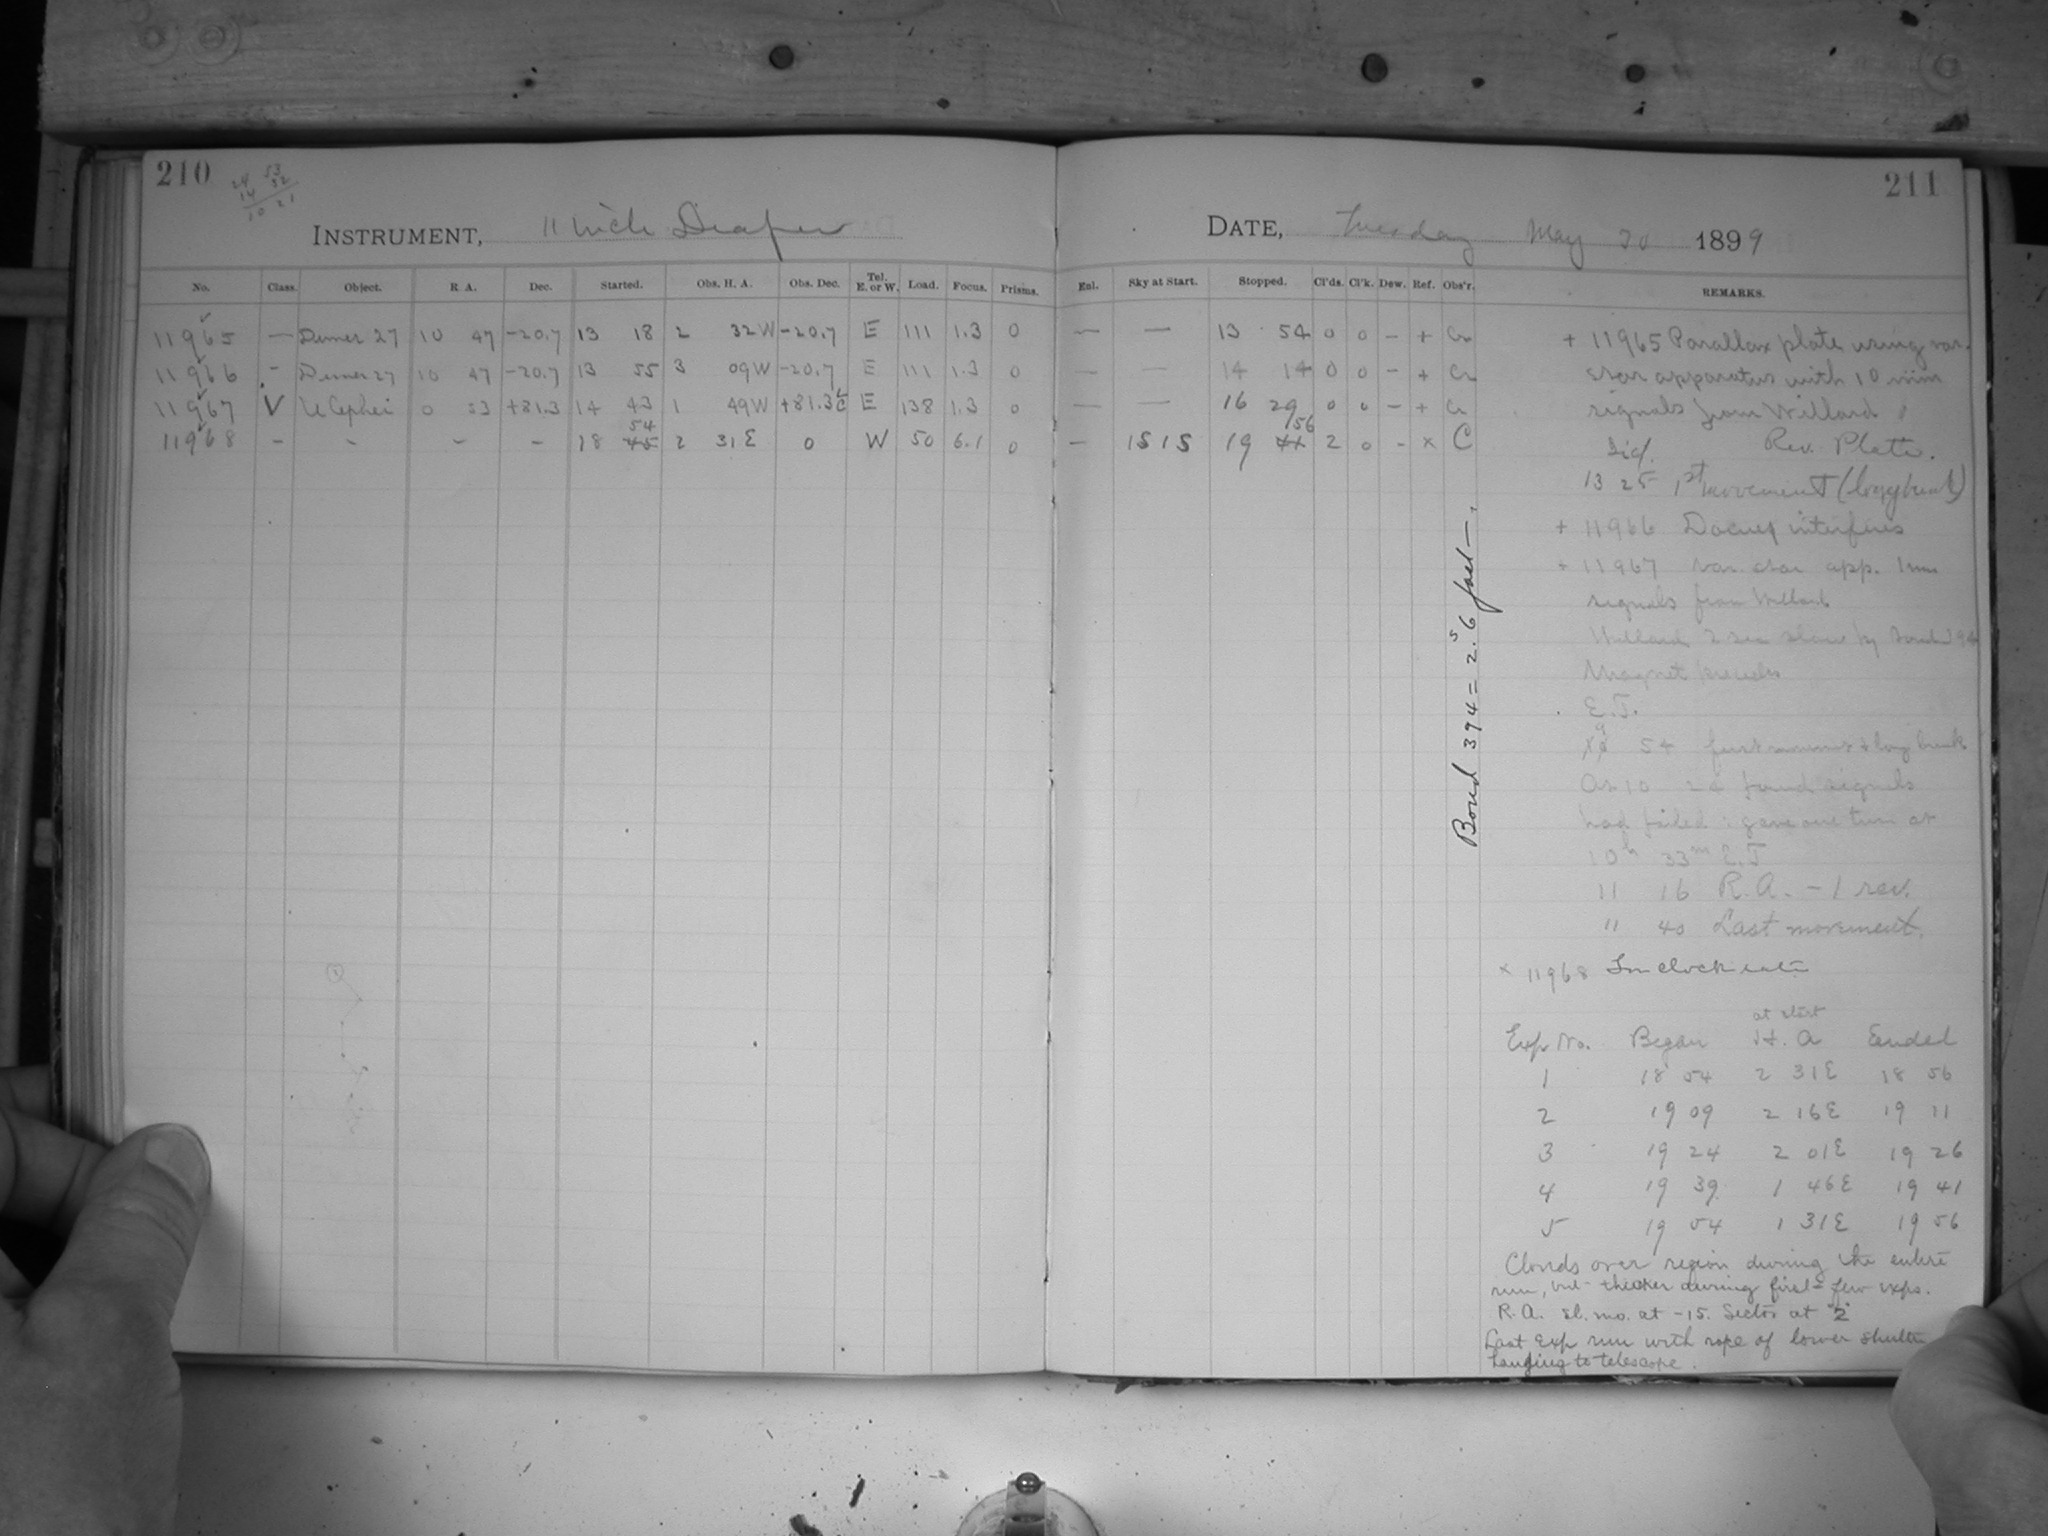 210
24 53
14 32
10 21
INSTRUMENT, 11 inch Draper
No. Class. Object. R A. Dec. Started. Obs. H. A. Obs. Dec. Tel. E. or W. Load. Focus. Prisms.
11965 — Duner 27 10 47 -20.7 13 18 2 32W -20.7 E 111 1.3 0
11966 - Duner 27 10 47 -20.7 13 55 3 09W -20.7 E 111 1.3 0
11967 V U Cephei 0 53 +81.3 14 43 1 49W +81.3 LC E 138 1.3 0
54
11968 - - - - 18 45 2 31E 0 W 50 6.1 0
211
DATE, Tuesday May 30 1899
Enl. Sky at Start. Stopped. Cl'ds. Cl'k. Dew. Ref. Obs'r. REMARKS.
— — 13 54 0 0 - + Cr
— — 14 14 0 0 - + Cr
— — 16 29 0 0 - + Cr
56
— 1515 19 41 2 0 - x C
Bond 394 = 2.s6 fast —.
+ 11965 Parallax plate using var.
star apparatus with 10 min
signals from Willard
Sid. Rev. Plate.
13 25 1st movement (long break)
+ 11966 Dome interferes
+ 11967 var. star app. 1 mm
signals from Willard
Willard 2 sec slow by Bond 394
Magnet precedes
E.T.
9 54 first movement & long break
At 10 24 found signals
had failed: gave one turn at
10h 33m E.T
11 16 R.A. - 1 rev.
" 40 Last movement.
x 11968 For clock rate
at start
Exp No. Began H. A Ended
1 18 54 2 31E 18 56
2 19 09 2 16E 19 11
3 19 24 2 01E 19 26
4 19 39 1 46E 19 41
5 19 54 1 31E 19 56
Clouds over region during the entire
run, but thicker during first few exps.
R.A. sl. mo. at -15. Sector at "2"
Last Exp run with rope of lower shutter
hanging to telescope.